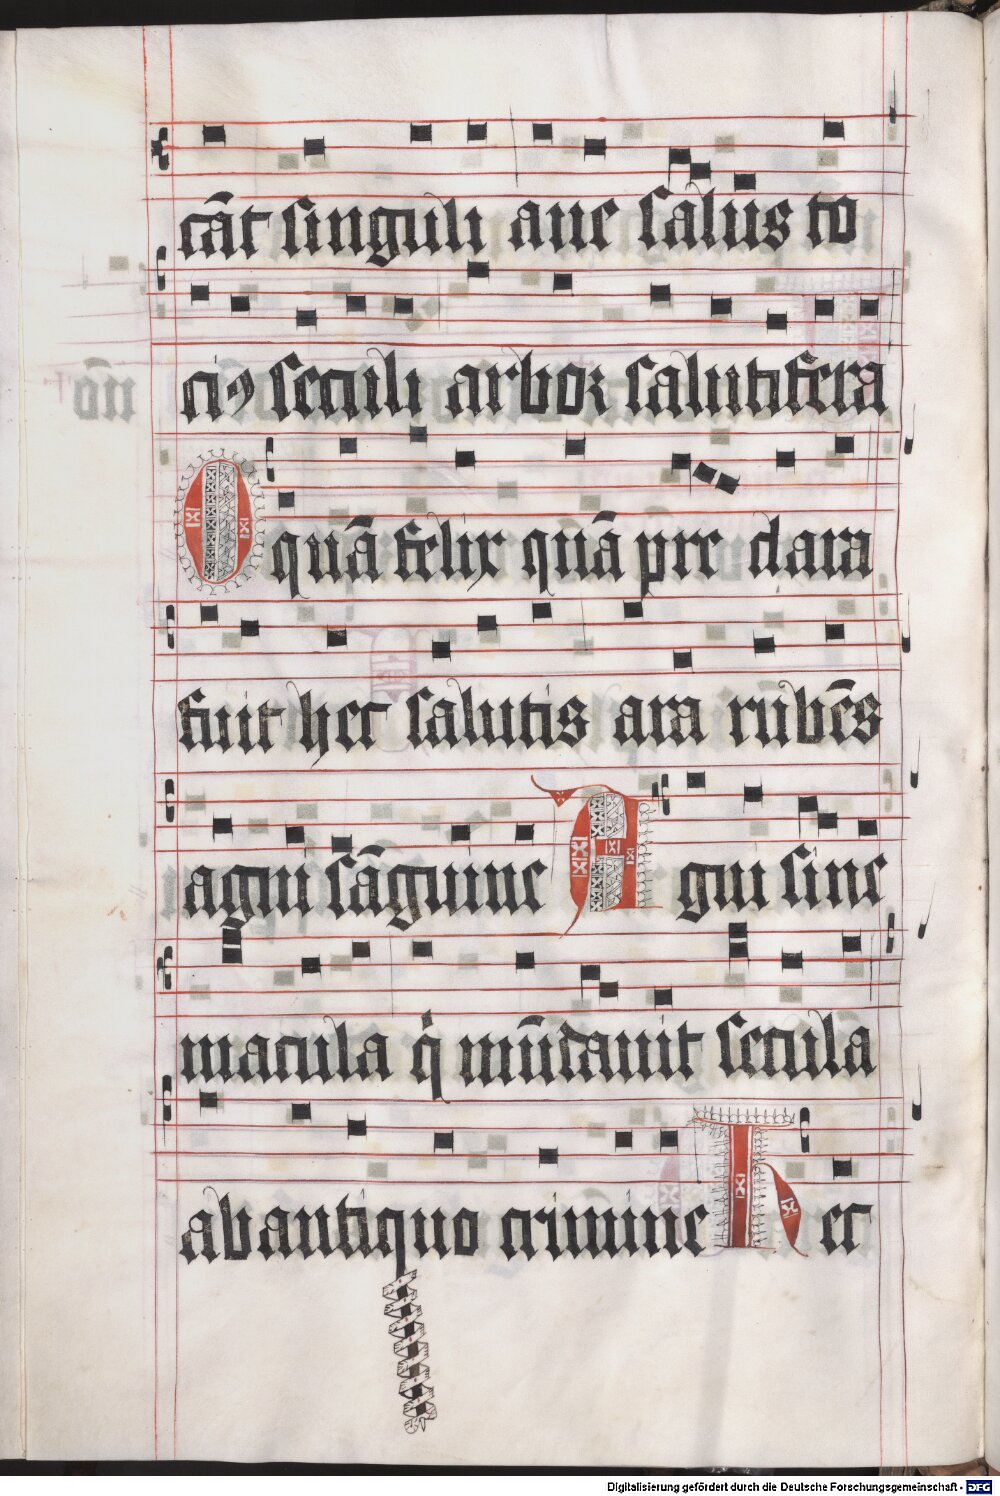 cāt singuli aue salus to
ciꝰ seculi arbor salutifera
O quā felix quā pre clara
fuit hec salutis ara rubēs
agni sāguine Agni sine
macula q̄ mūdauit secula
ab antiquo crimine Hec
Digitalisierung gefördert durch die Deutsche Forschungsgemeinschaft - DFG